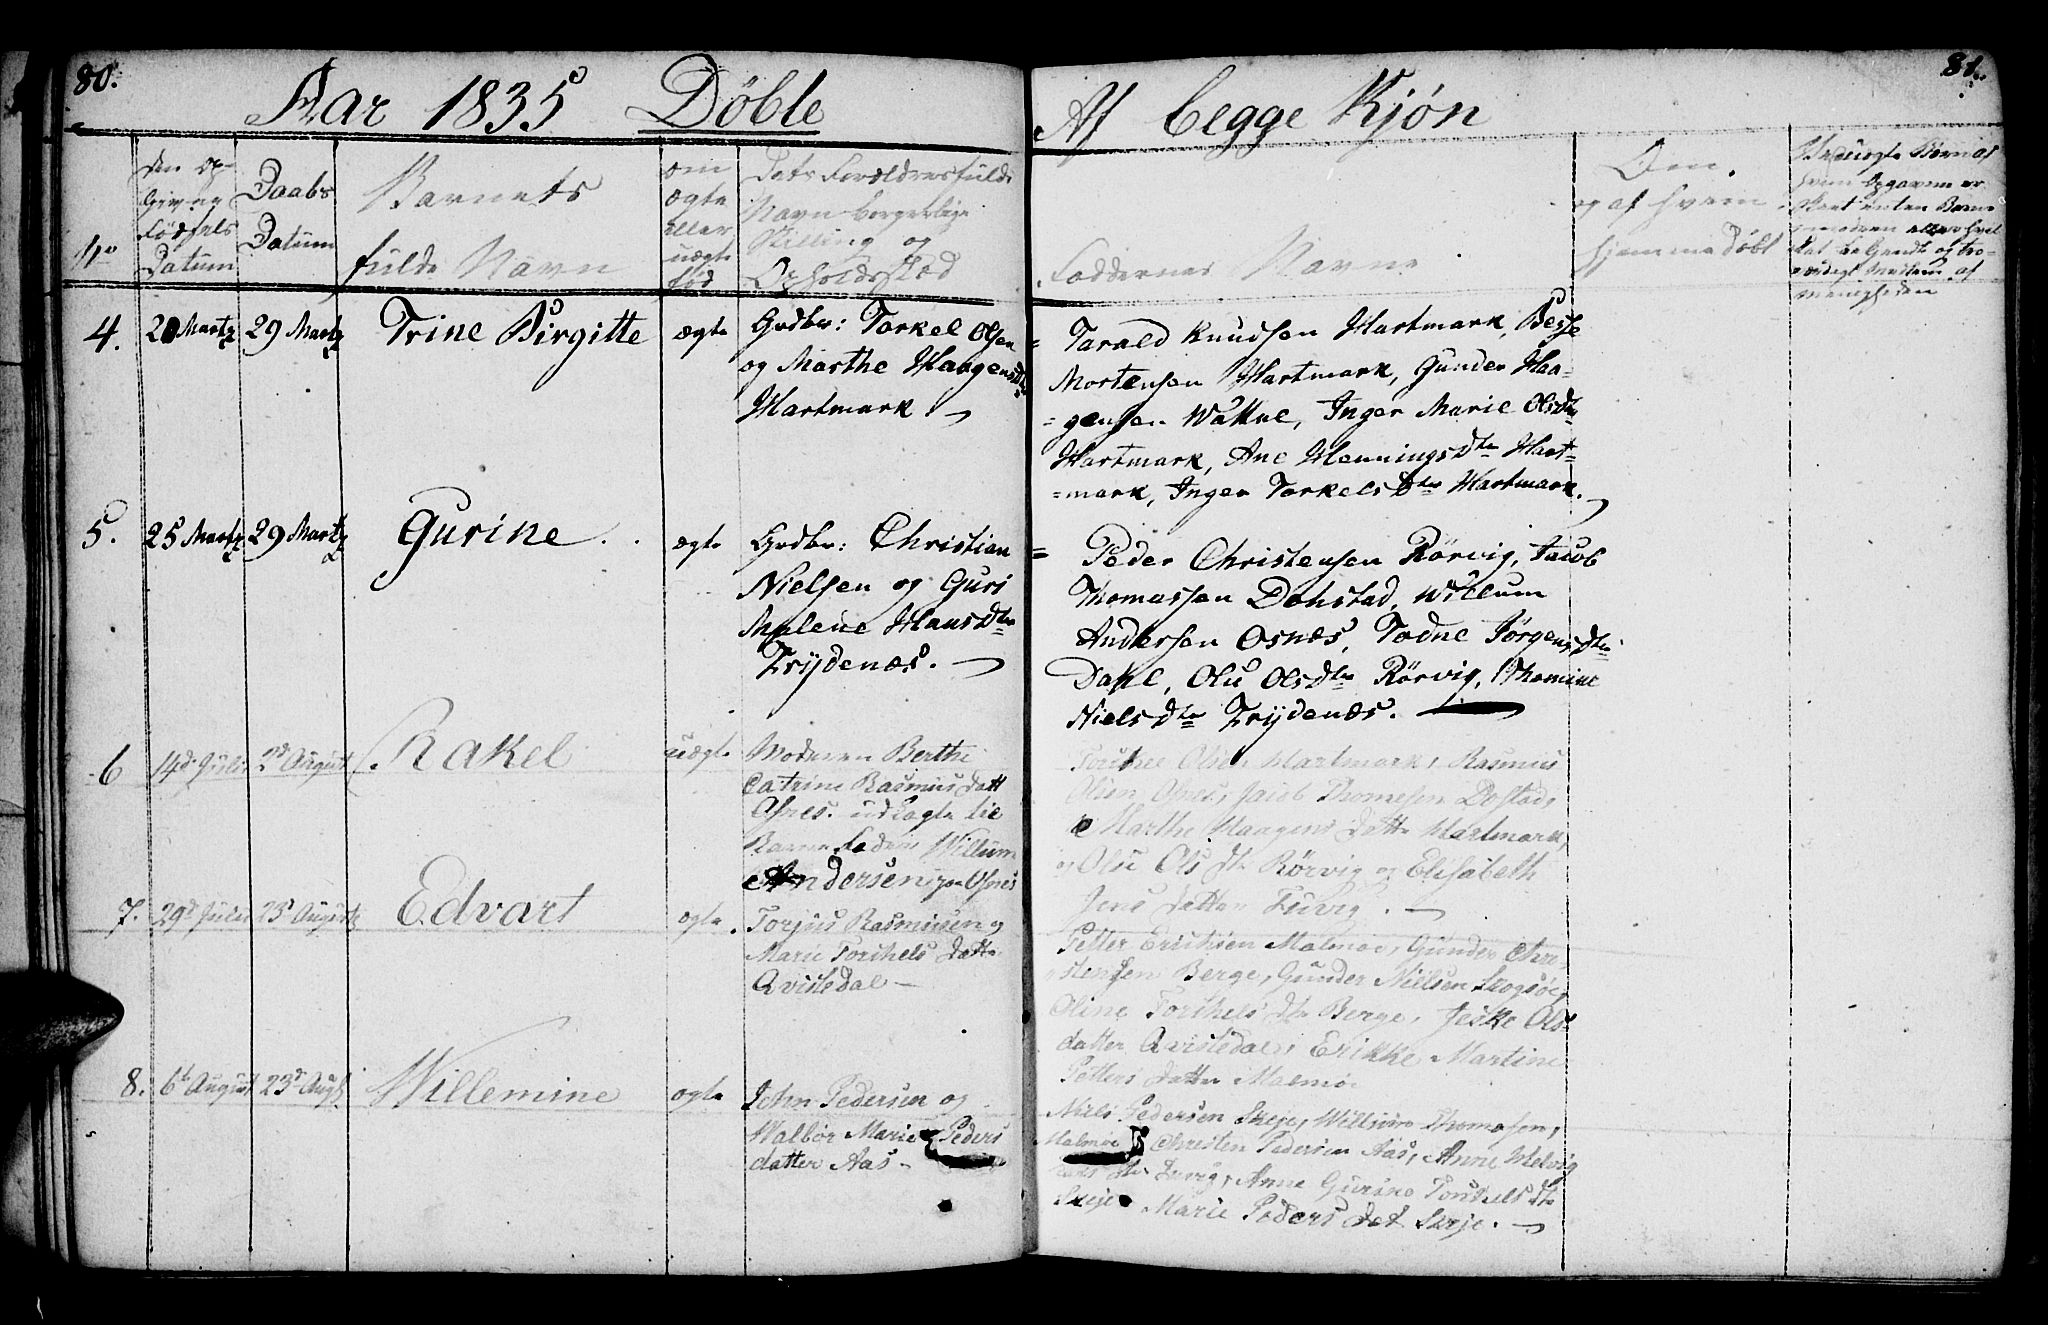 80.
Aar 1835 Døbte
Af begge Kjøn
81.
No
Den Op-
givne
Fødsels
Datum
Daabs
Datum
Barnets
fulde Navn
om
ægte
eller
uægte
fød
Dets Forældres fulde
Navn borgerlige
Stilling og
Opholdssted
Faddernes Navne
Om
og af hvem
hjemmedøbt
Ved uægte Børn af
hvem Opgaven er
skeet enten Barne
moderen eller hvil
ket bekjendt og tro-
værdigt Medlem af
Menigheden
4.
20 Martz
29 Martz
Trine Birgitte
ægte
Grdbr: Torkel Olsen
og Marthe Haagensdtr
Hartmark
Tarald Knudsen Hartmark, Berge
Mortensen Hartmark, Gunder Haa=
=gensen Wattne, Inger Marie Olsdtr
Hartmark, Ane HenningsDtr Hart=
=mark, Inger TorkelsDtr Hartmark.
5.
25 Martz
29 Martz
Gurine.
ægte
Grdbr: Christian
Nielsen og Guri
Malene HansDtr
Trydenæs.
Peder Christensen Rörvig, Jacob
Thomassen Dohstad, Willum
Andersen Osnæs, Todne JørgensDtr
Dahl, Olu OlsDtr Rörvig, Thomine
NielsDtr Trydenæs.
6
14d Julii
2d August
Rakel
uægte
Moderen Berthe
Catrine Rasmus Datt
Osnes. udlagte til
Barne Fader Willum
Andersen Osnes
Torkel Olsen Hartmark, Rasmus
Olsen Osnes, Jacob Thomesen Dostad,
Marthe Haagens Datter Hartmark,
og Olu Ols dtr Rørvig og Elisabeth
Jens Datter Furvig.
7.
29d Julii
23d August
Edvart
ægte.
Torjus Rasmusen og
Marie Torkels Datter
Qvisledal
Petter Ericksen Malmøe, Gunder Chri
stensen Berge, Gunder Nielsen Skogsøe,
Oline Torkels dtr Berge, Jeske Ols
datter Qvisledal, Erikke Martine
Petters Datter Malmøe
8.
6te August
23d Augst
Willemine
ægte
John Pedersen og
Walbor Marie Peders
datter Aas
Niels Pedersen Skeje, Willum Thomesen,
Malmøe Christen Pedersen Aas, Anne Helvig
dtr Furvig, Anne Gurine Torkels dtr
Skeje Marie Peders dat Skeje.